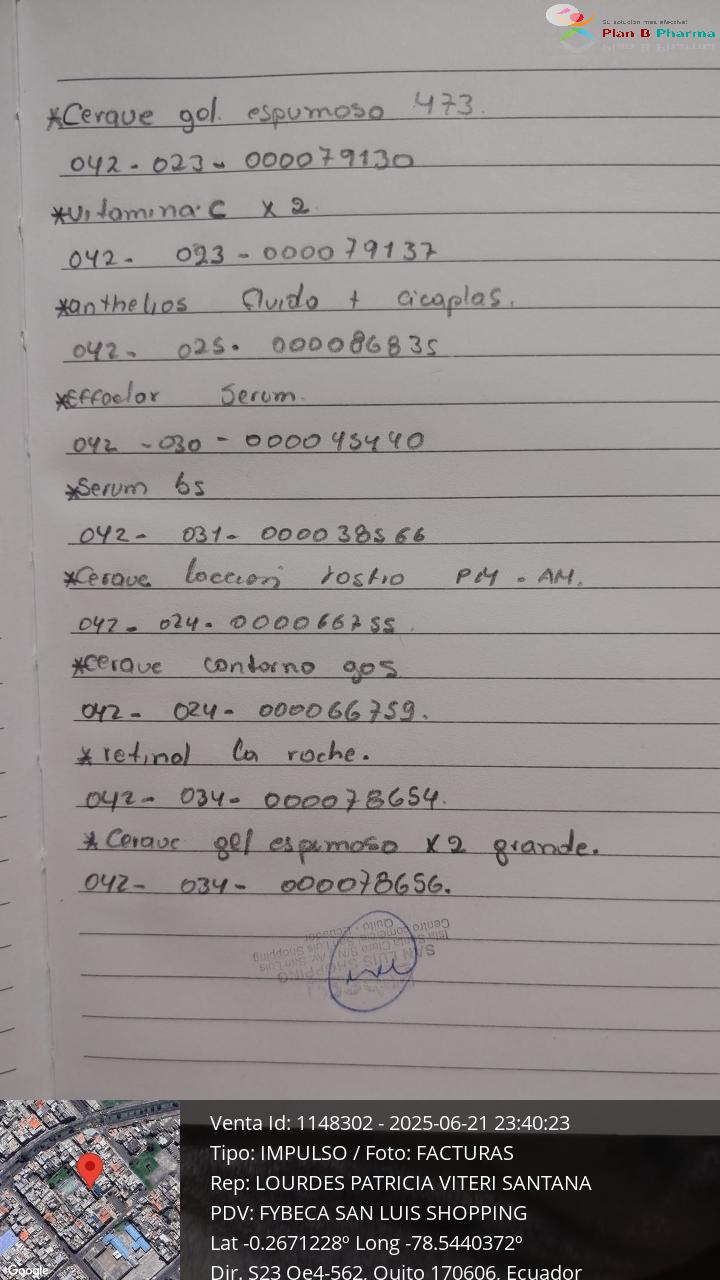 Su solución mas efectiva!
Plan B Pharma
*Cerave gol. espumoso 473.
042 - 023 - 000079130
*Vitamina C x 2
042 - 023 - 000079137
*anthelios fluido + cicaplas.
042 - 025 - 000086835
*Effaclar Serum.
042 - 030 - 000045440
*Serum b5
042 - 031 - 000038566
*Cerave loccion rostro PM - AM.
042 - 024 - 000066755
*Cerave contorno gos
042 - 024 - 000066759.
*retinol la roche.
042 - 034 - 000078654.
*Cerave gel espumoso x 2 grande.
042 - 034 - 000078656.
SAN LUIS SHOPPING
Isla Santa Clara S/N y Av. San Luis
Centro Comercial San Luis Shopping
Quito - Ecuador
Google
Venta Id: 1148302 - 2025-06-21 23:40:23
Tipo: IMPULSO / Foto: FACTURAS
Rep: LOURDES PATRICIA VITERI SANTANA
PDV: FYBECA SAN LUIS SHOPPING
Lat -0.2671228º Long -78.5440372º
Dir. S23 Oe4-562, Quito 170606, Ecuador